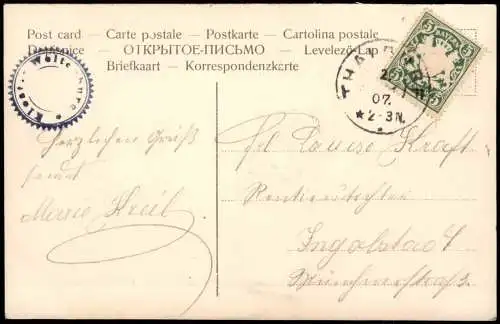 Post card — Carte postale — Postkarte — Cartolina postale
— ОТКРЫТОЕ-ПИСЬМО — Levelező-Lap
Briefkaart — Korrespondenzkarte
Klost. Weltenburg
THAL
07.
2-3N.
5 5
Herzlichen Gruß
sendet
Marie
Frl Louise Kraft
Rentierstochter
Ingolstadt
Münchnerstraße